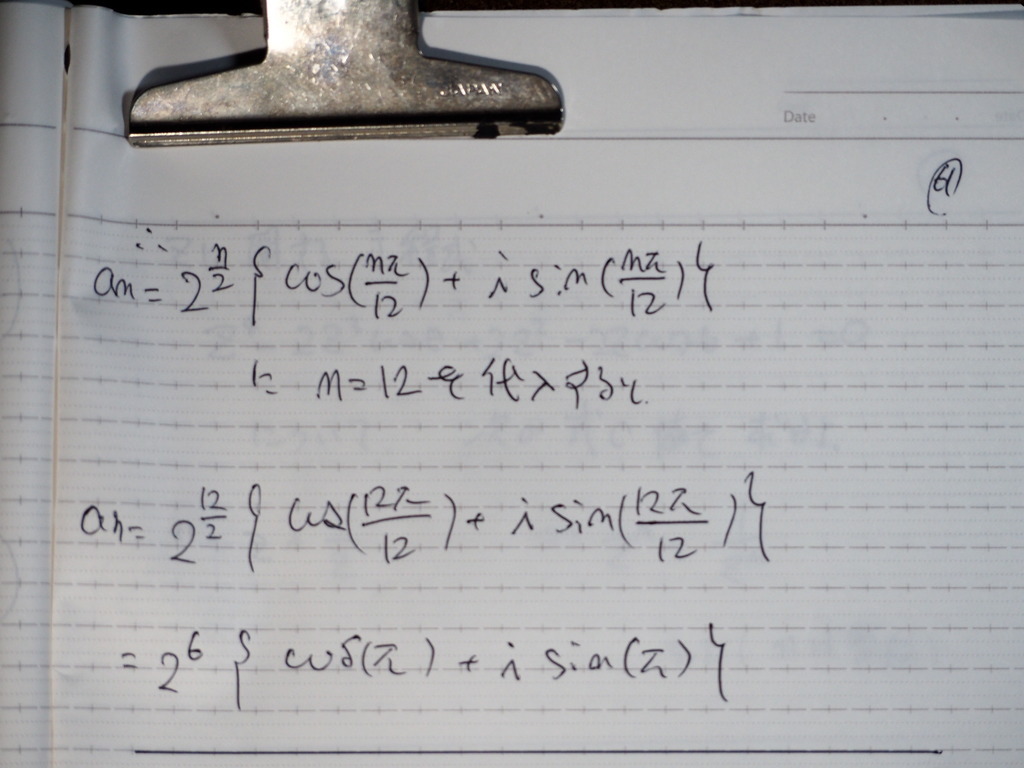 JAPAN
Date
∴
an = 2^{n/2} { cos(nπ/12) + i sin(nπ/12) }
に n=12 を代入すると
an = 2^{12/2} { cos(12π/12) + i sin(12π/12) }
= 2^6 { cos(π) + i sin(π) }